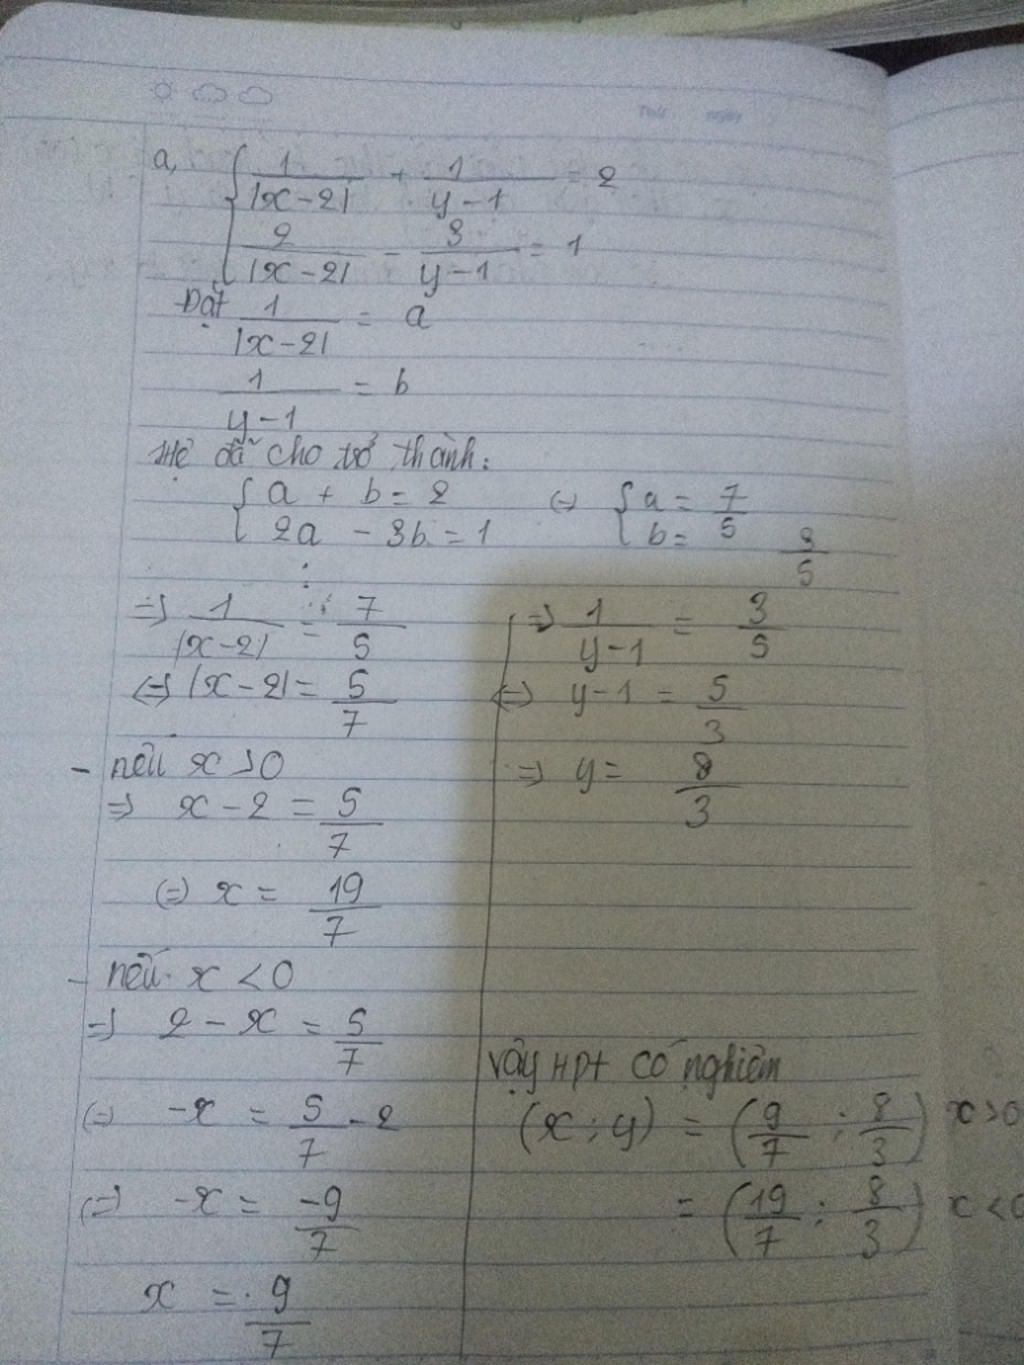 Thứ ngày
a, { 1/|x-2| + 1/y-1 = 2
{ 2/|x-2| - 3/y-1 = 1
Đặt 1/|x-2| = a
1/y-1 = b
Hệ đã cho trở thành:
{ a + b = 2 (=) { a = 7/5
{ 2a - 3b = 1 { b = 3/5
=> 1/|x-2| = 7/5
<=> |x-2| = 5/7
- nếu x > 0
=> x - 2 = 5/7
(=) x = 19/7
- nếu x < 0
=> 2 - x = 5/7
(=) -x = 5/7 - 2
(=) -x = -9/7
x = 9/7
=> 1/y-1 = 3/5
<=> y-1 = 5/3
=> y = 8/3
Vậy Hpt có nghiệm
(x; y) = (9/7 ; 8/3) x > 0
= (19/7 ; 8/3) x < 0